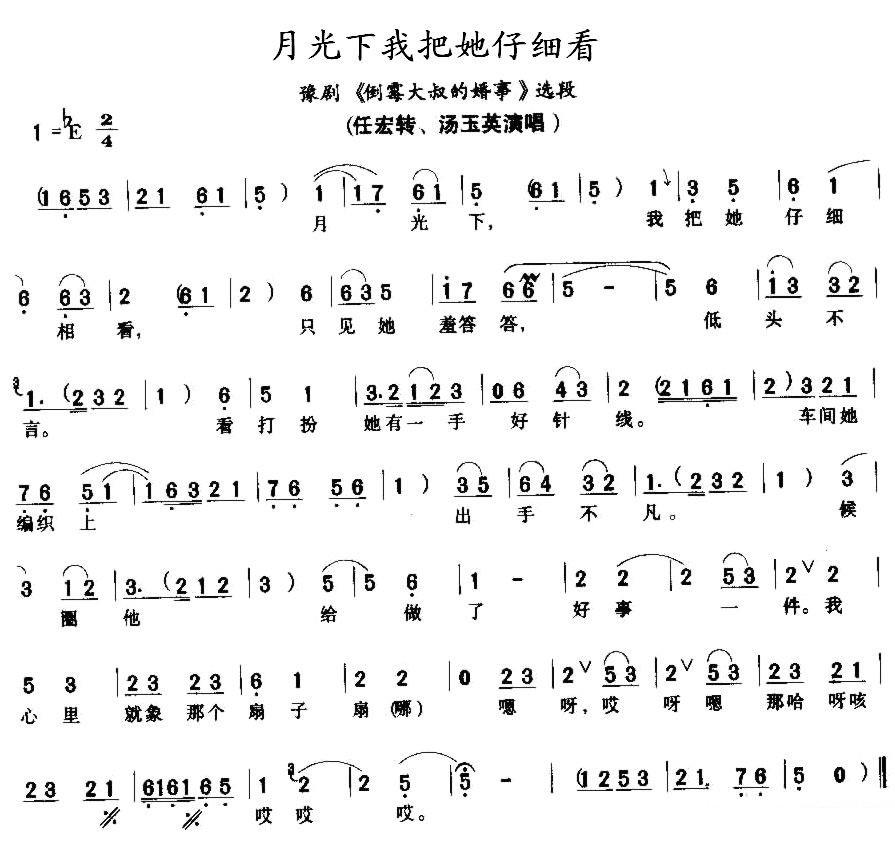 月光下我把她仔细看
豫剧《倒霉大叔的婚事》选段
(任宏转、汤玉英演唱)
1=♭E 2/4
(1 6 5 3 | 2 1 6 1 | 5) 1 | 1 7 6 1 | 5 (6 1 | 5) 1 | 3 5 | 6 1 |
月 光 下, 我 把 她 仔 细
6 6 3 | 2 (6 1 | 2) 6 | 6 3 5 | i 7 6 6 | 5 - | 5 6 | i 3 3 2 |
相 看, 只 见 她 羞答 答, 低 头 不
3 1. (2 3 2 | 1) 6 | 5 1 | 3. 2 1 2 3 | 0 6 4 3 | 2 (2 1 6 1 | 2) 3 2 1 |
言。 看 打 扮 她有一 手 好 针 线。 车间她
7 6 5 1 | 1 6 3 2 1 | 7 6 5 6 | 1) 3 5 | 6 4 3 2 | 1. (2 3 2 | 1) 3 |
编织 上 出 手 不 凡。 候
3 1 2 | 3. (2 1 2 | 3) 5 | 5 6 | 1 - | 2 2 | 2 5 3 | 2 ∨ 2 |
圈 他 给 做 了 好 事 一 件。我
5 3 | 2 3 2 3 | 6 1 | 2 2 | 0 2 3 | 2 ∨ 5 3 | 2 ∨ 5 3 | 2 3 2 1 |
心 里 就象 那个 扇 子 扇 (哪) 嗯 呀, 哎 呀 嗯 那哈 呀咳
2 3 2 1 | 6 1 6 1 6 5 | 1 3 2 | 2 5 | 5 - | (1 2 5 3 | 2 1. 7 6 | 5 0) ‖
哎 哎 哎。